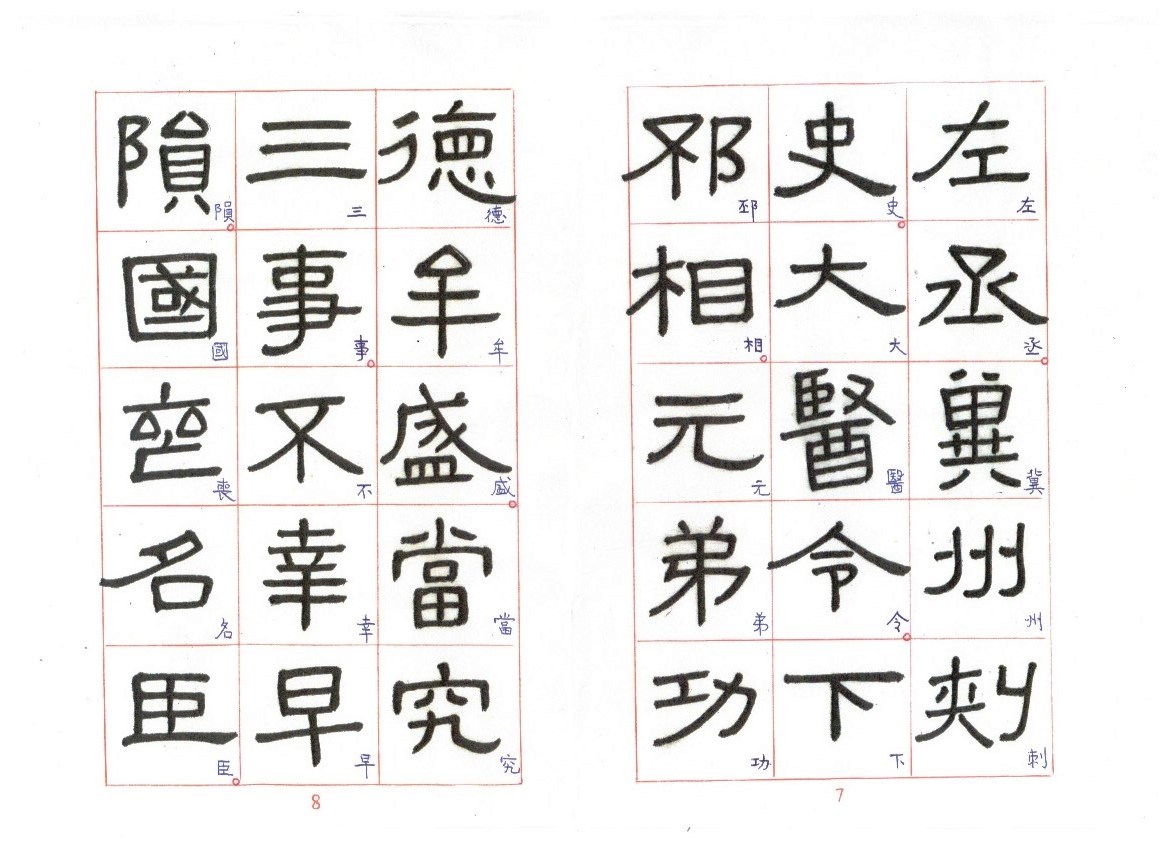 左丞冀州刺
左丞。冀州刺
史大醫令下
史。大醫令。下
邳相元弟功
邳相。元弟功
7
德牟盛當究
德牟盛。當究
三事不幸早
三事。不幸早
隕國喪名臣
隕。國喪名臣。
8